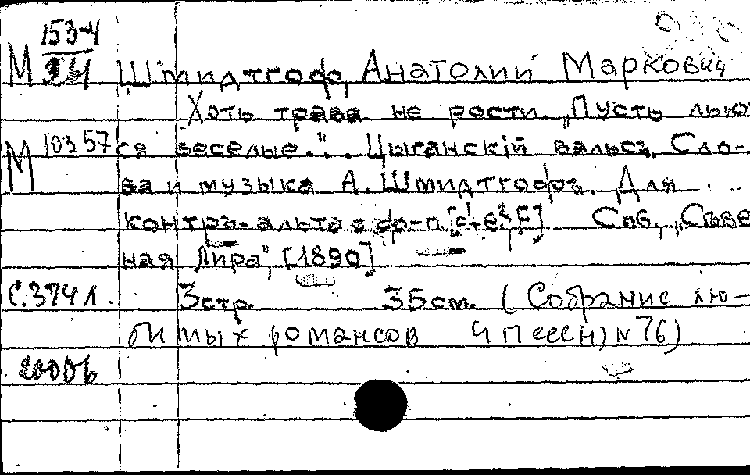 М 153-4
Шмидтгоф, Анатолий Маркович
Хоть трава не рости. „Пусть лью
М 10357
ся веселые.". Цыганскій вальсъ. Сло-
ва и музыка А. Шмидтгофъ. Для
контръ-альто с ф-п.
Спб, „Съве
ная Лира", [1890]
С.374 л. 3 стр. 35 см. (Собрание лю-
бимых романсов и песен) N 76)